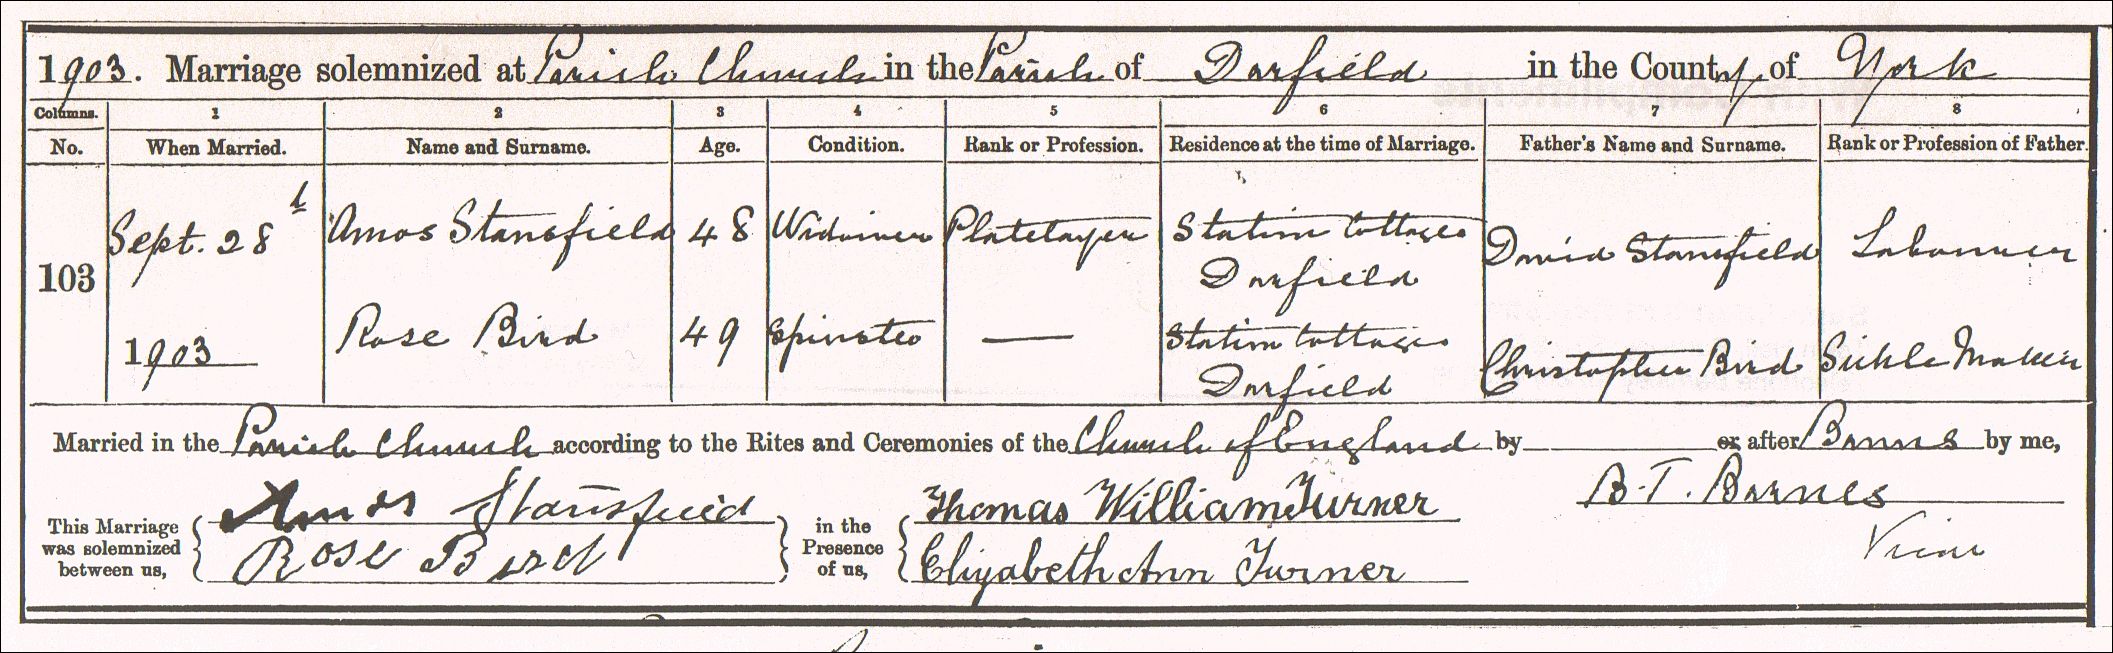 1903. Marriage solemnized at Parish Church in the Parish of Darfield in the County of York
Columns. 1 2 3 4 5 6 7 8
No. When Married. Name and Surname. Age. Condition. Rank or Profession. Residence at the time of Marriage. Father's Name and Surname. Rank or Profession of Father.
103 Sept. 28th Amos Stansfield 48 Widower Platelayer Station Cottages Darfield David Stansfield Labourer
1903 Rose Bird 49 Spinster — Station Cottages Darfield Christopher Bird Sickle Maker
Married in the Parish Church according to the Rites and Ceremonies of the Church of England by or after Banns by me,
This Marriage was solemnized between us,
Amos Stansfield
Rose Bird
in the Presence of us,
Thomas William Turner
Elizabeth Ann Turner
B. T. Barnes
Vicar